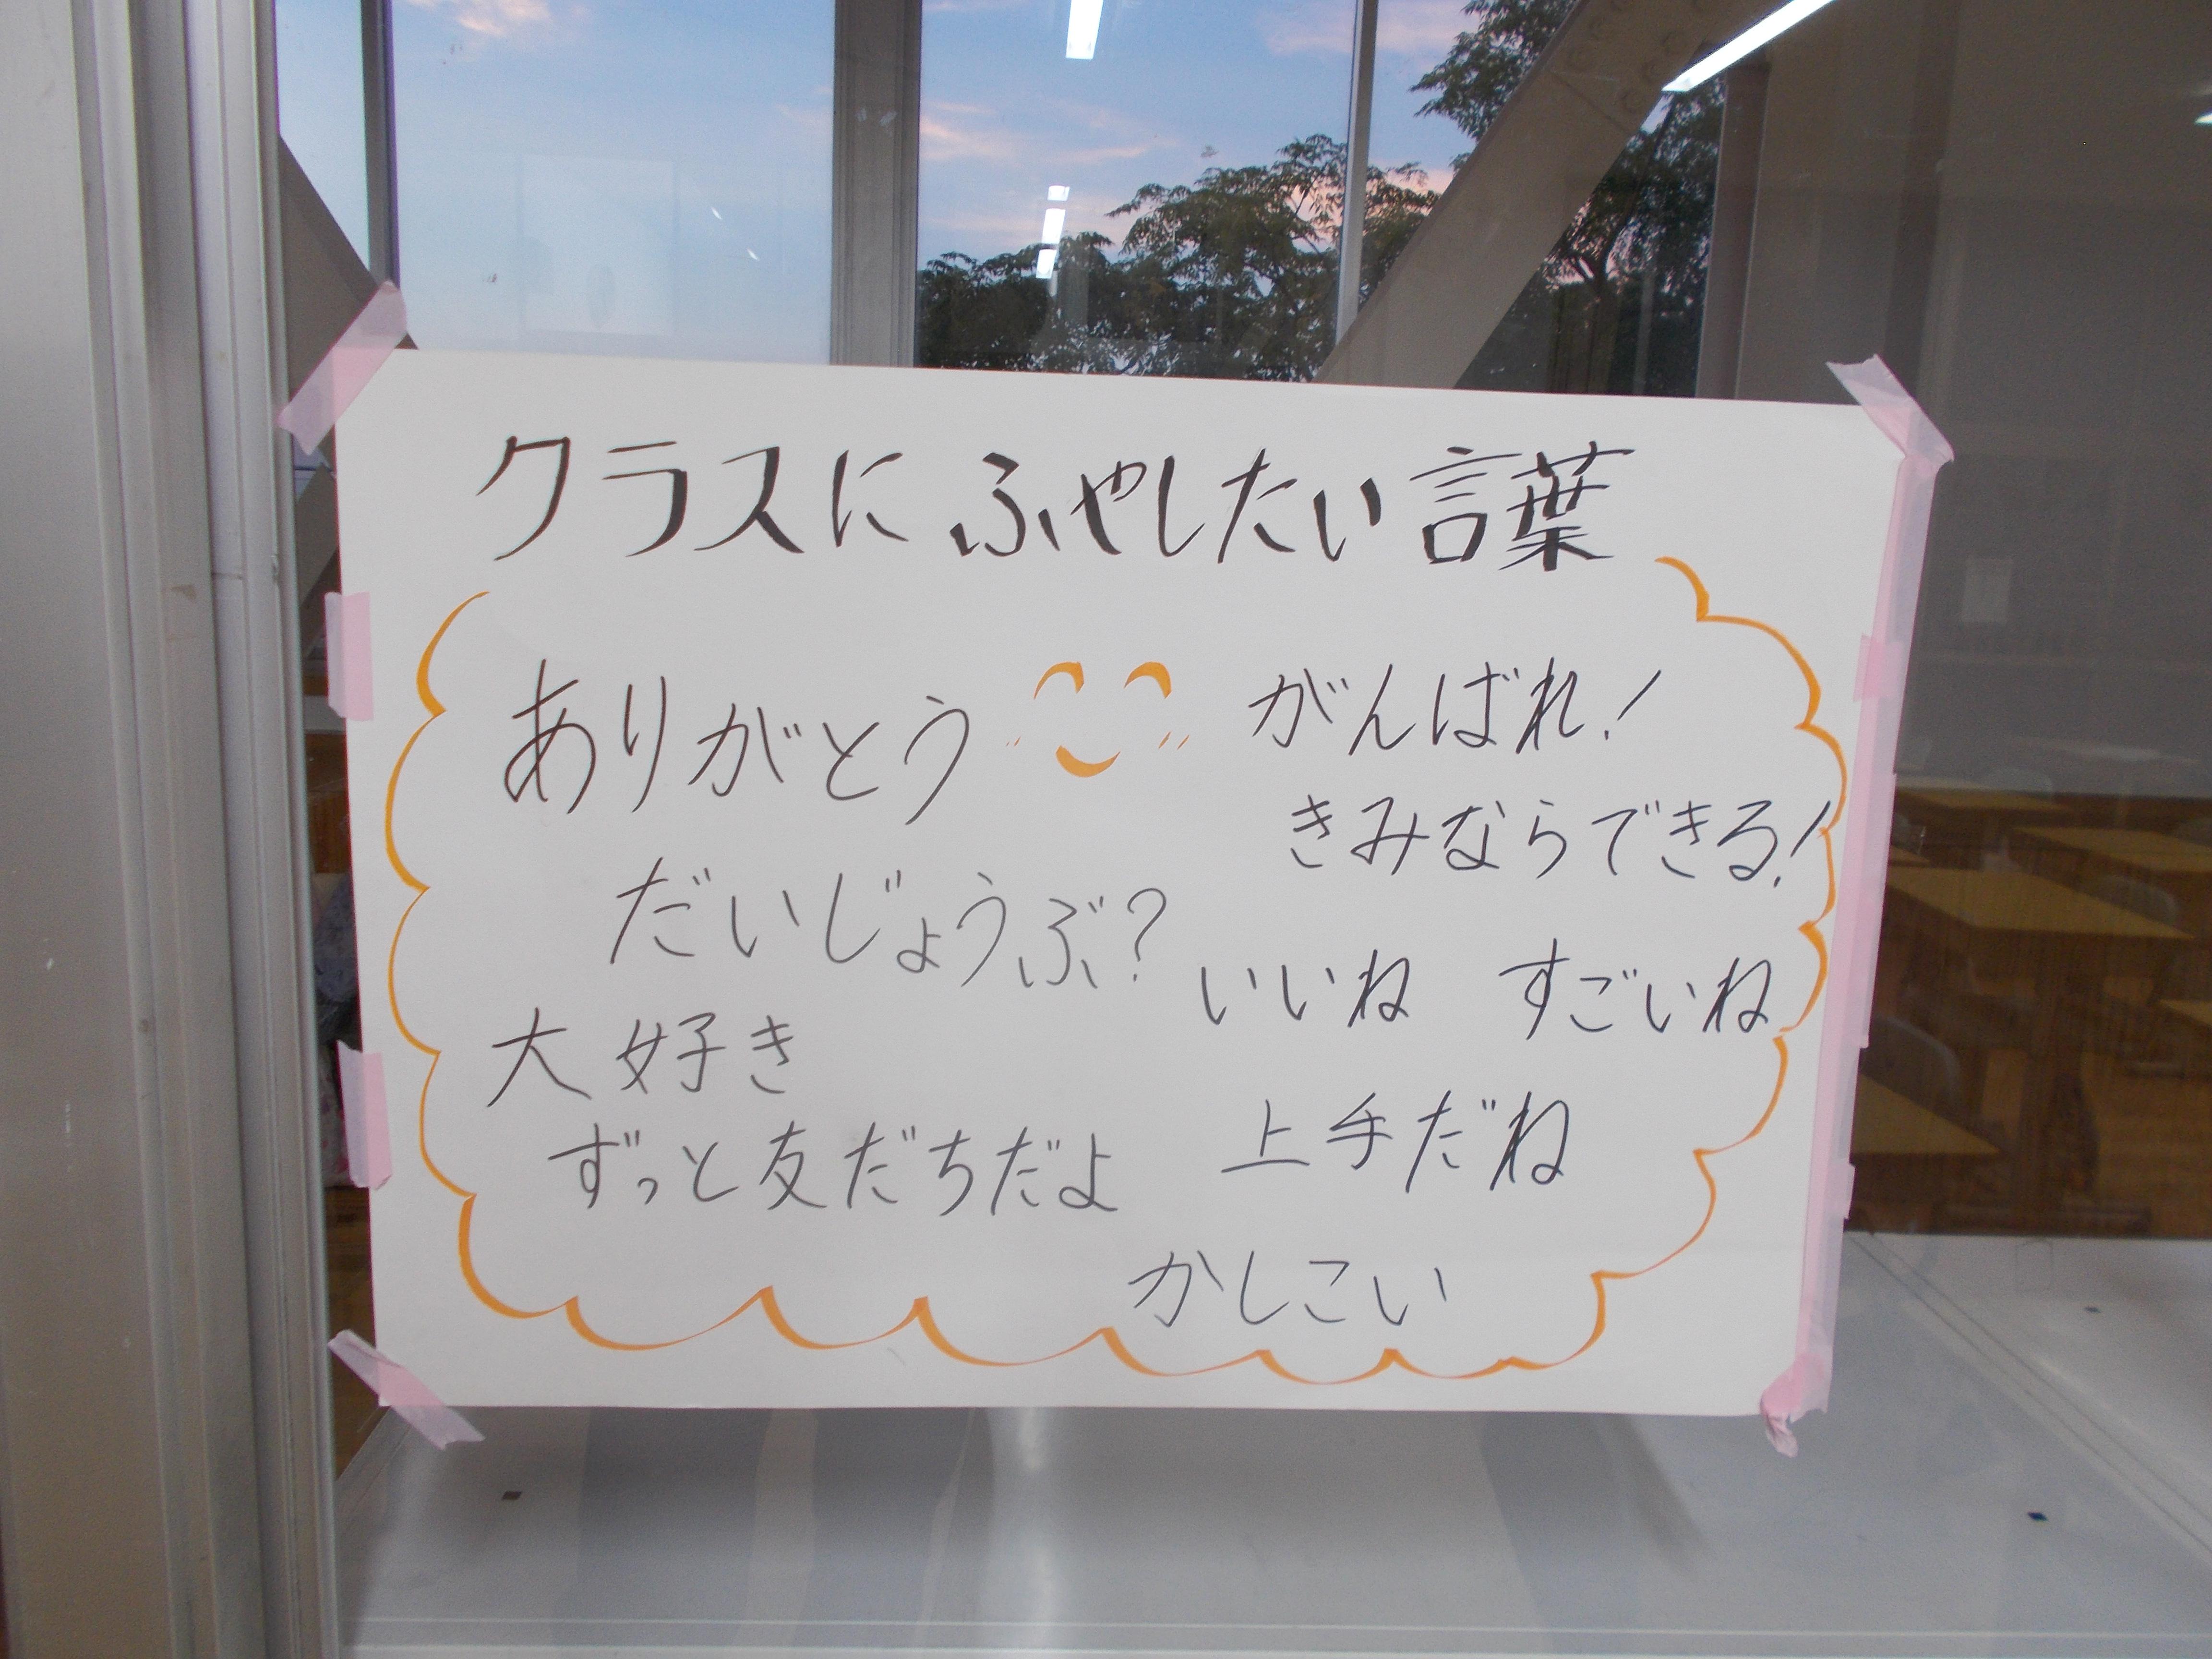 クラスにふやしたい言葉
ありがとう
だいじょうぶ?
大好き
ずっと友だちだよ
がんばれ!
きみならできる!
いいね すごいね
上手だね
かしこい